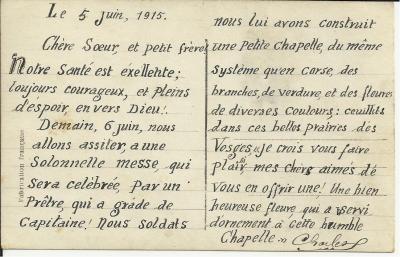 Le 5 Juin, 1915.
Chère Sœur, et petit frère!
Notre Santé est éxellente;
toujours courageux, et pleins
d'espoir, envers Dieu!
Demain, 6 juin, nous
allons assiter, a une
Solonnelle messe, qui
sera celébrée, Par un
Prêtre, qui a grâde de
Capitaine! Nous soldats
Fabrication française
nous lui avons construit
une Petite Chapelle, du même
système qu'en Corse, des
branches, de verdure, et des fleures
de diverses Couleurs: ceuillits
dans ces belles prairies des
Vosges, je crois vous faire
Plair, mes chérs aimés dé
vous en offrir une! Une bien
heureuse fleure, qui a servi
d'ornement à cette humble
Chapelle " Charles